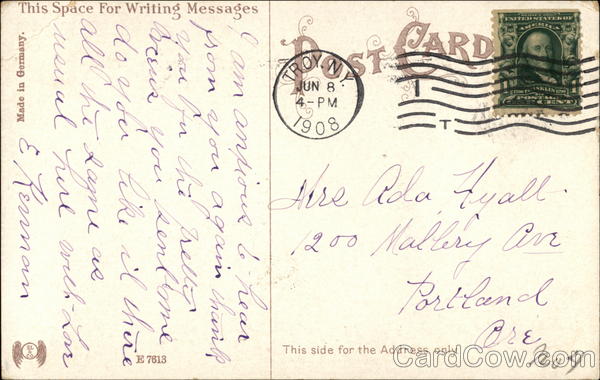 This Space For Writing Messages
Made in Germany.
I am anxious to hear
from you again thank
you for the pretty
you sent me
do you like it there
all the same as
usual here with Love
E Kennan
E 7613
POST CARD
TROY, N.Y.
JUN 8
4-PM
1908
UNITED STATES OF
AMERICA
POSTAGE
CENT
Mrs Ada Hyall
1200 Mallery Ave
Portland
Ore
This side for the Address only.
CardCow.com